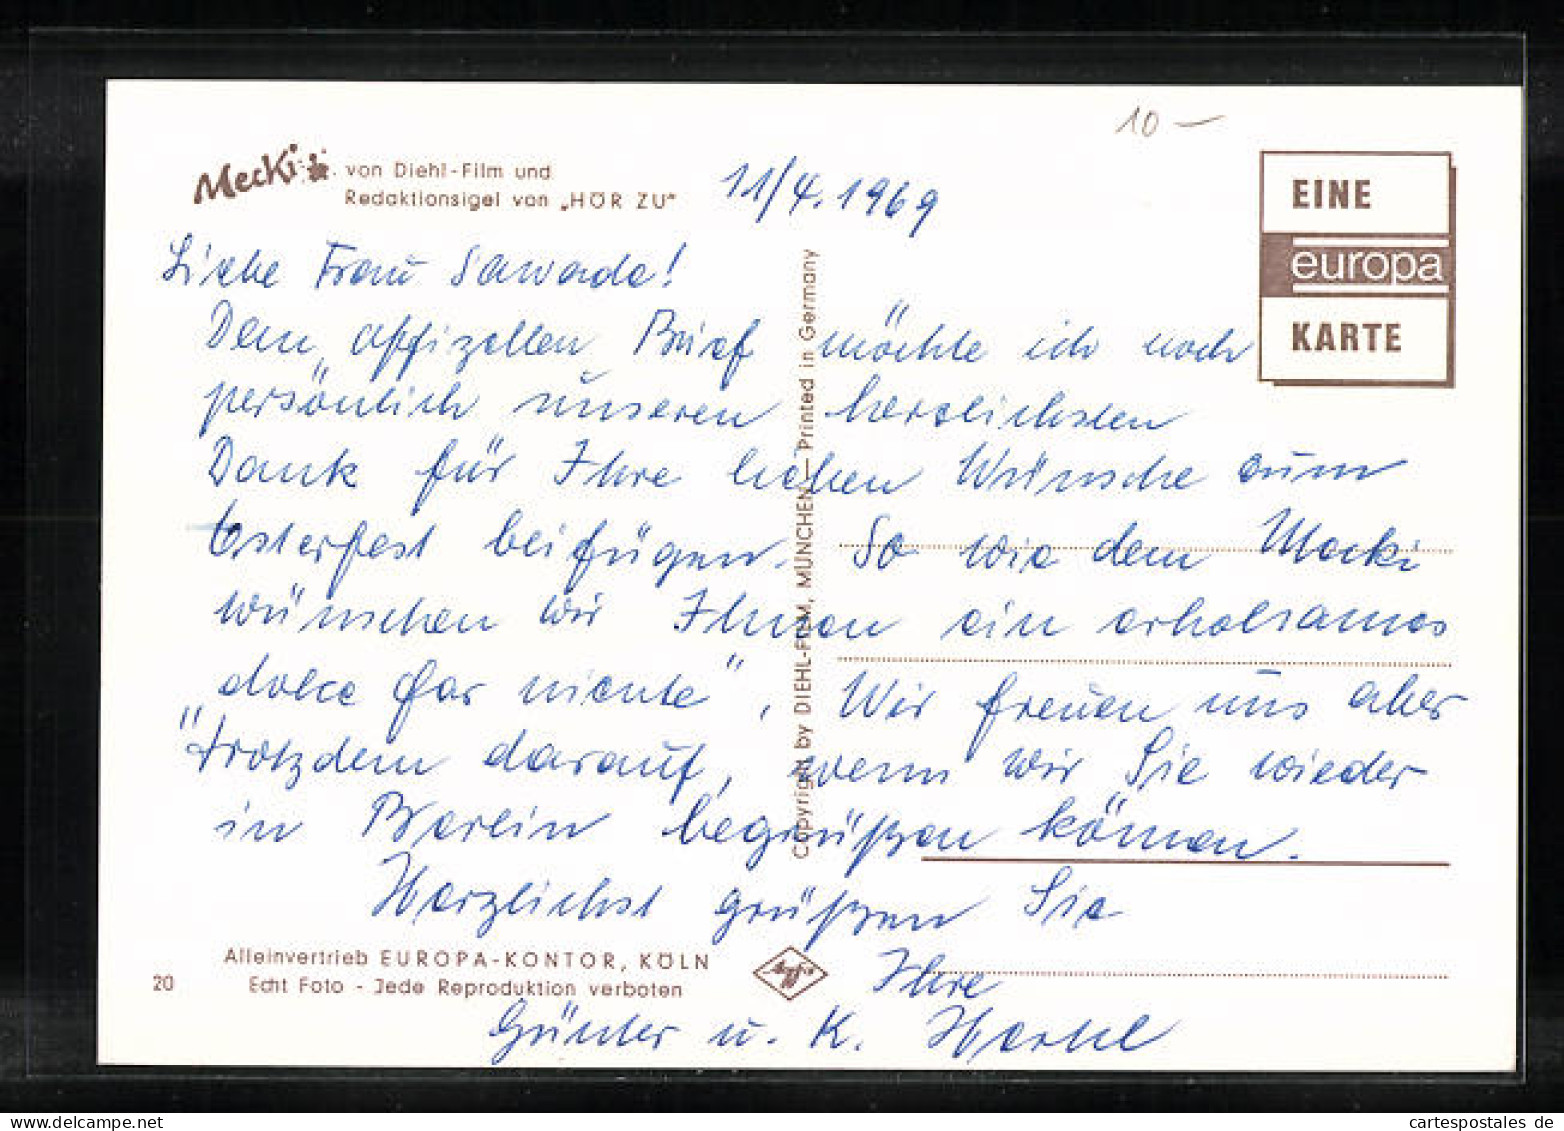 10 —
Mecki von Diehl-Film und
Redaktionsigel von „HÖR ZU"
11/4. 1969
EINE
europa
KARTE
Liebe Frau Sawade!
Dem „offizellen Brief möchte ich noch
persönlich unseren herzlichsten
Dank für Ihre lieben Wünsche zum
Osterfest beifügen. So wie dem Mecki
wünschen wir Ihnen ein erholsames
„dolce far niente", Wir freuen uns aber
trotzdem darauf, wenn wir Sie wieder
in Berlin begrüßen können.
Herzlichst grüßen Sie
Ihre
Günter u. K.
Copyright by DIEHL-FILM, MÜNCHEN — Printed in Germany
Alleinvertrieb EUROPA-KONTOR, KÖLN
20 Echt Foto - Jede Reproduktion verboten
Agfa
cartespostales.de